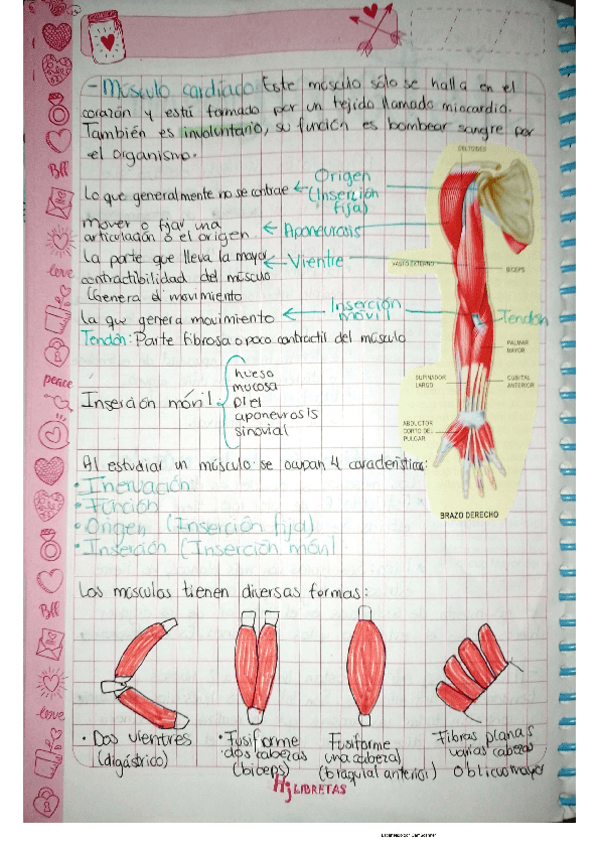 - Músculo cardíaco: Este músculo sólo se halla en el
corazón y está formado por un tejido llamado miocardio.
También es involuntario, su función es bombear sangre por
el organismo.
Origen
(Inserción
fija)
Lo que generalmente no se contrae
mover o fijar una
articulación o el origen
Aponeurosis
La parte que lleva la mayor
contractibilidad del músculo
(Genera el movimiento
Vientre
La que genera movimiento
Inserción
móvil
Tendón
Tendón: Parte fibrosa o poco contractil del músculo
DELTOIDES
VASTO EXTERNO
BICEPS
PALMAR
MAYOR
SUPINADOR
LARGO
CUBITAL
ANTERIOR
ABDUCTOR
CORTO DEL
PULGAR
BRAZO DERECHO
Inserción móvil:
hueso
mucosa
piel
aponeurosis
sinovial
Al estudiar un músculo se ocupan 4 características:
• Inervación
• Función
• Origen (Inserción fija)
• Inserción (Inserción móvil
Los músculos tienen diversas formas:
• Dos vientres
(digástrico)
• Fusiforme
dos cabezas
(biceps)
Fusiforme
una cabeza)
(braquial anterior)
Fibras planas
varias cabezas
Oblicuo mayor
Hj LIBRETAS
BFF
love
peace
BFF
love